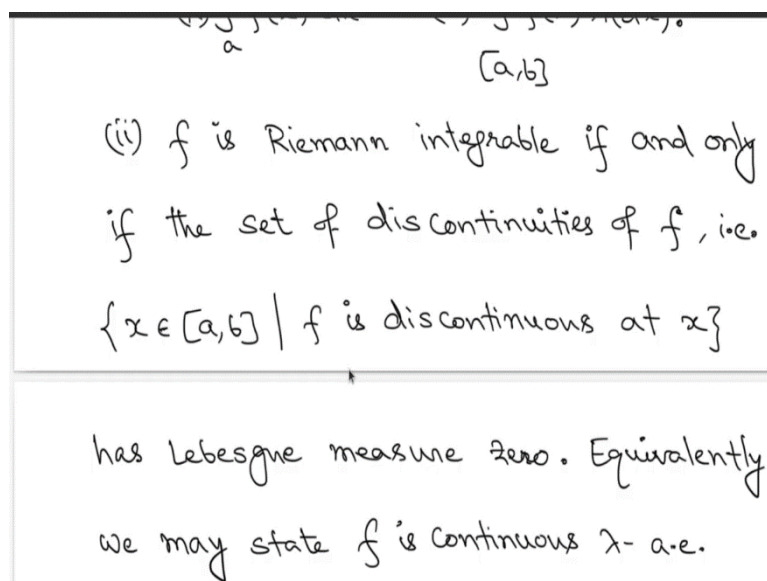 a
[a,b]
(ii) f is Riemann integrable if and only
if the set of discontinuities of f, i.e.
{x ∈ [a,b] | f is discontinuous at x}
has Lebesgue measure zero. Equivalently
we may state f is continuous λ- a.e.